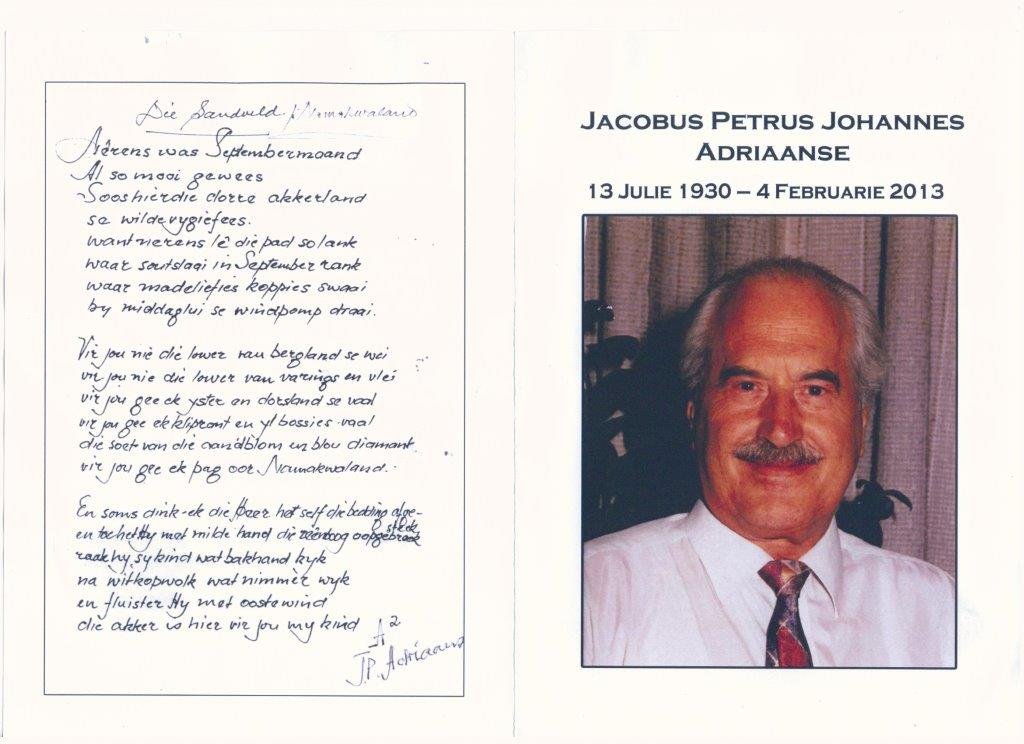 Die Sandveld / Namakwaland
Nêrens was Septembermaand
Al so mooi gewees
Soos hierdie dorre akkerland
se wildevygiefees.
want nerens lê die pad so lank
waar soutslaai in September rank
waar madeliefies koppies swaai
by middaglui se windpomp draai.
Vir jou nie die lower van bergland se wei
vir jou nie die lower van varings en vlei
vir jou gee ek yster en dorsland se vaal
vir jou gee ek kliprant en ylbossies vaal
die soet van die aandblom en blou diamant
vir jou gee ek pag oor Namakwaland.
En soms dink-ek die Heer het self die bedding afge-
steek
en toe het Hy met milde hand die reënboog oopgebreek
raak hy sy kind wat bakhand kyk
na witkopwolk wat nimmer wyk
en fluister Hy met oostewind
die akker is hier vir jou my kind
A²
J.P. Adriaanse
JACOBUS PETRUS JOHANNES
ADRIAANSE
13 JULIE 1930 – 4 FEBRUARIE 2013